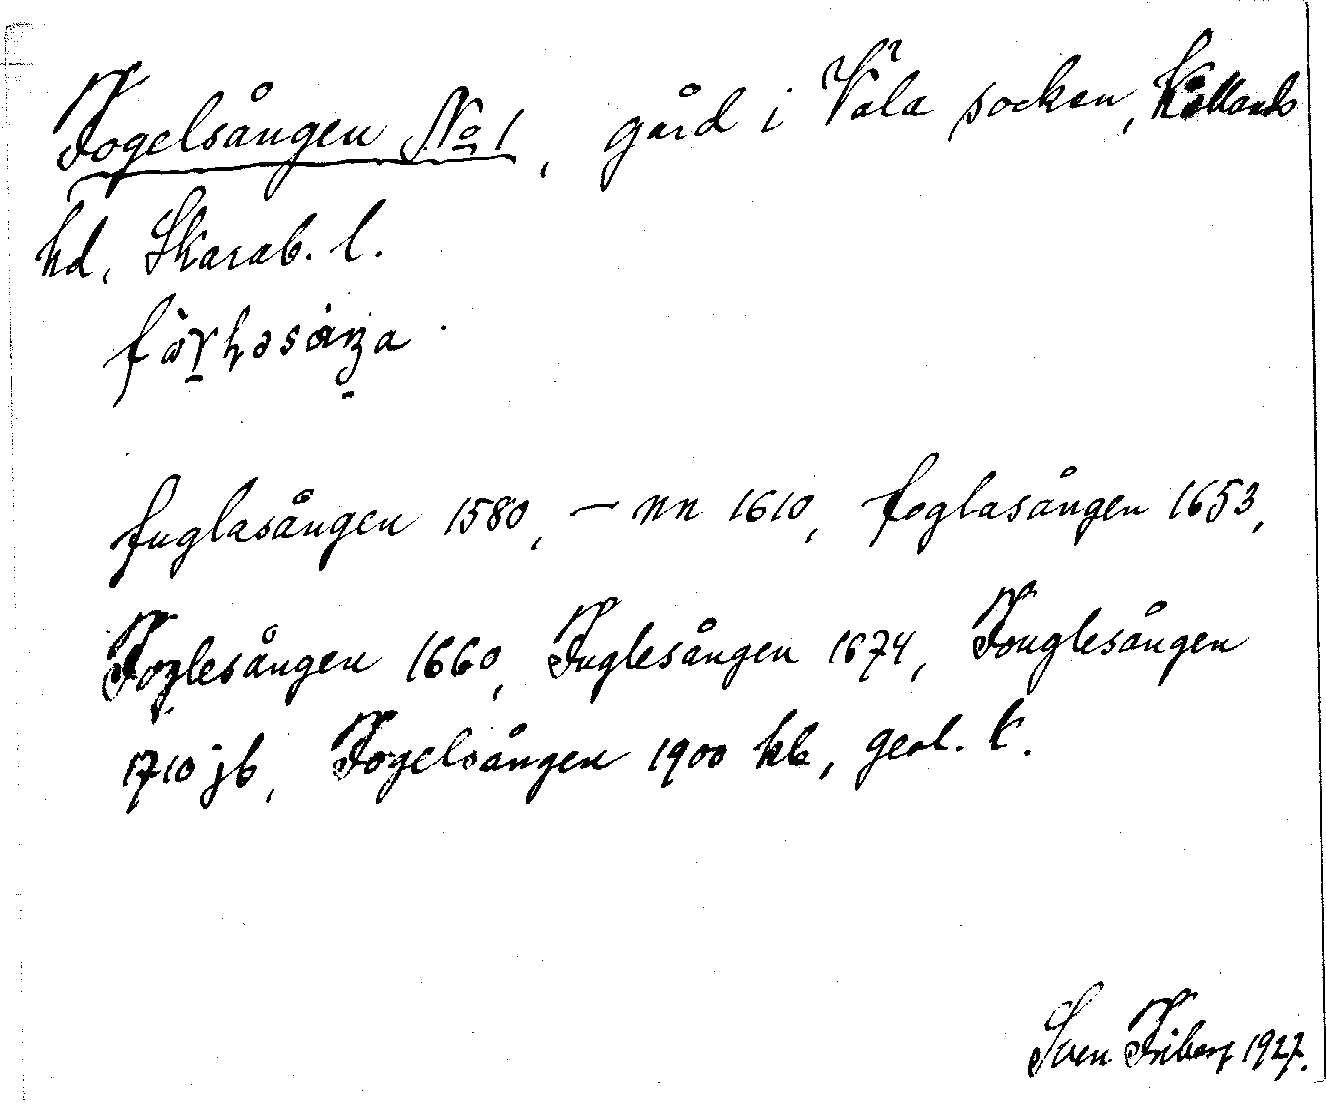 Fogelsången No 1, gård i Väla socken, Kållands
hd, Skarab. l.
fuglasången 1580, — nn 1610, foglasången 1653,
Foglesången 1660, Fuglesången 1674, Fouglesången
1710 jb, Fogelsången 1900 kb, geol. k.
Sven Friberg 1927.